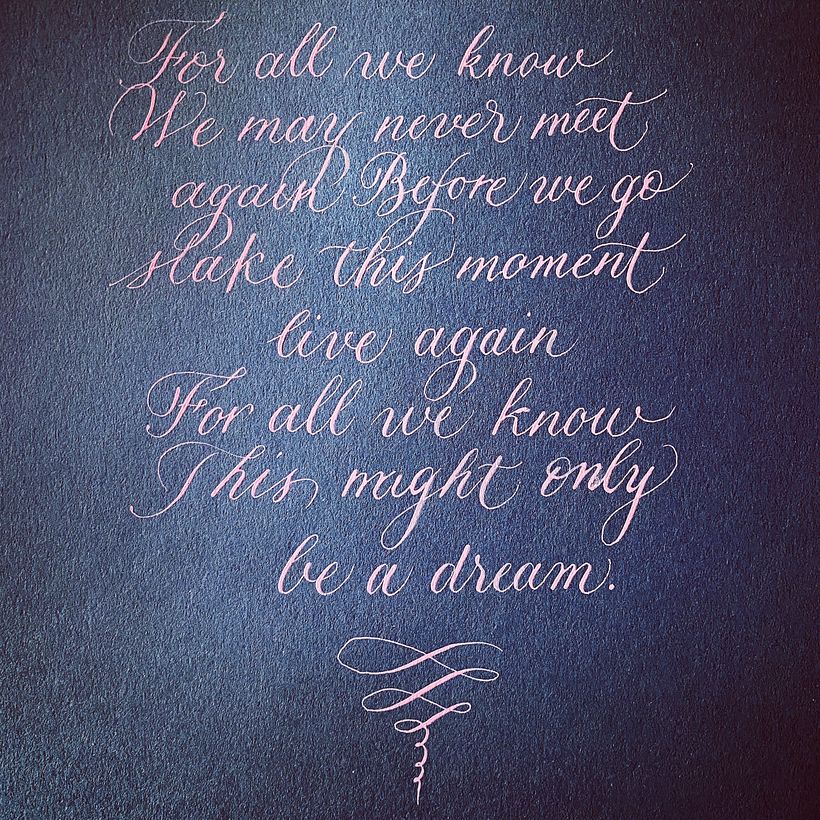 For all we know
We may never meet
again Before we go
slake this moment
live again
For all we know
This might only
be a dream.